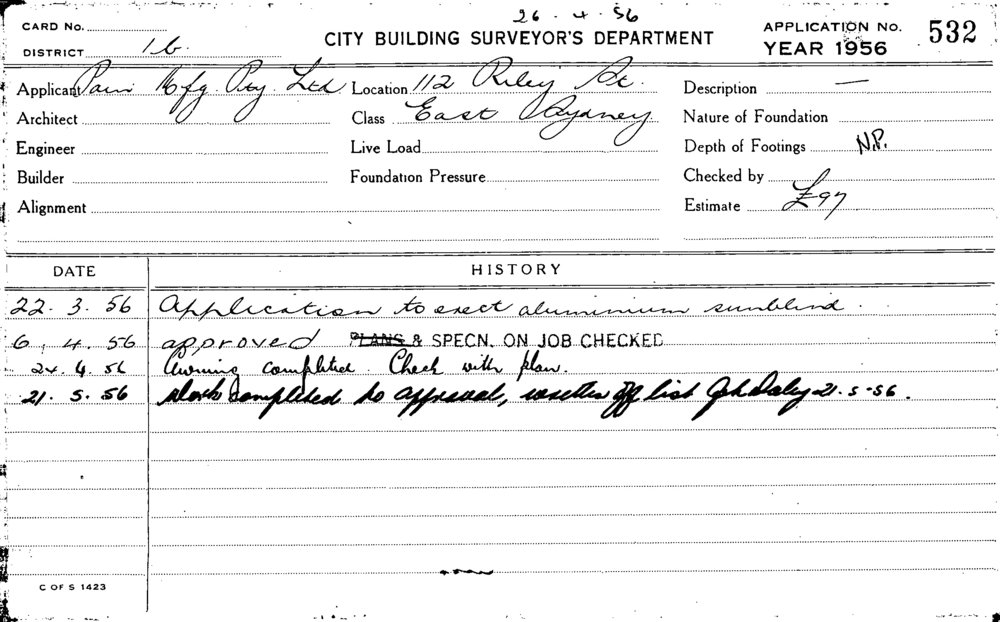 26 . 4 . 56
CARD No.
CITY BUILDING SURVEYOR'S DEPARTMENT
APPLICATION No. 532
DISTRICT 1b.
YEAR 1956
Applicant Mfg. Pty. Ltd Location 112 Riley St. Description —
Architect Class East Sydney Nature of Foundation
Engineer Live Load Depth of Footings N.P.
Builder Foundation Pressure Checked by
Alignment Estimate £97
DATE HISTORY
22. 3. 56 Application to erect aluminium sunblind.
6. 4. 56 approved PLANS & SPECN. ON JOB CHECKED
24. 4. 56 Awning completed. Check with plan.
21. 5. 56 Work completed to approval, written off list Daley 21-5-56.
C OF S 1423